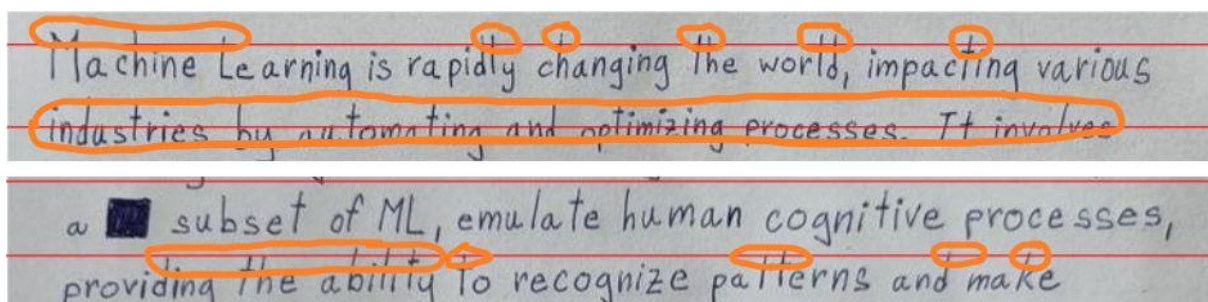 Machine Learning is rapidly changing the world, impacting various
industries by automating and optimizing processes. It involves
a subset of ML, emulate human cognitive processes,
providing the ability to recognize patterns and make